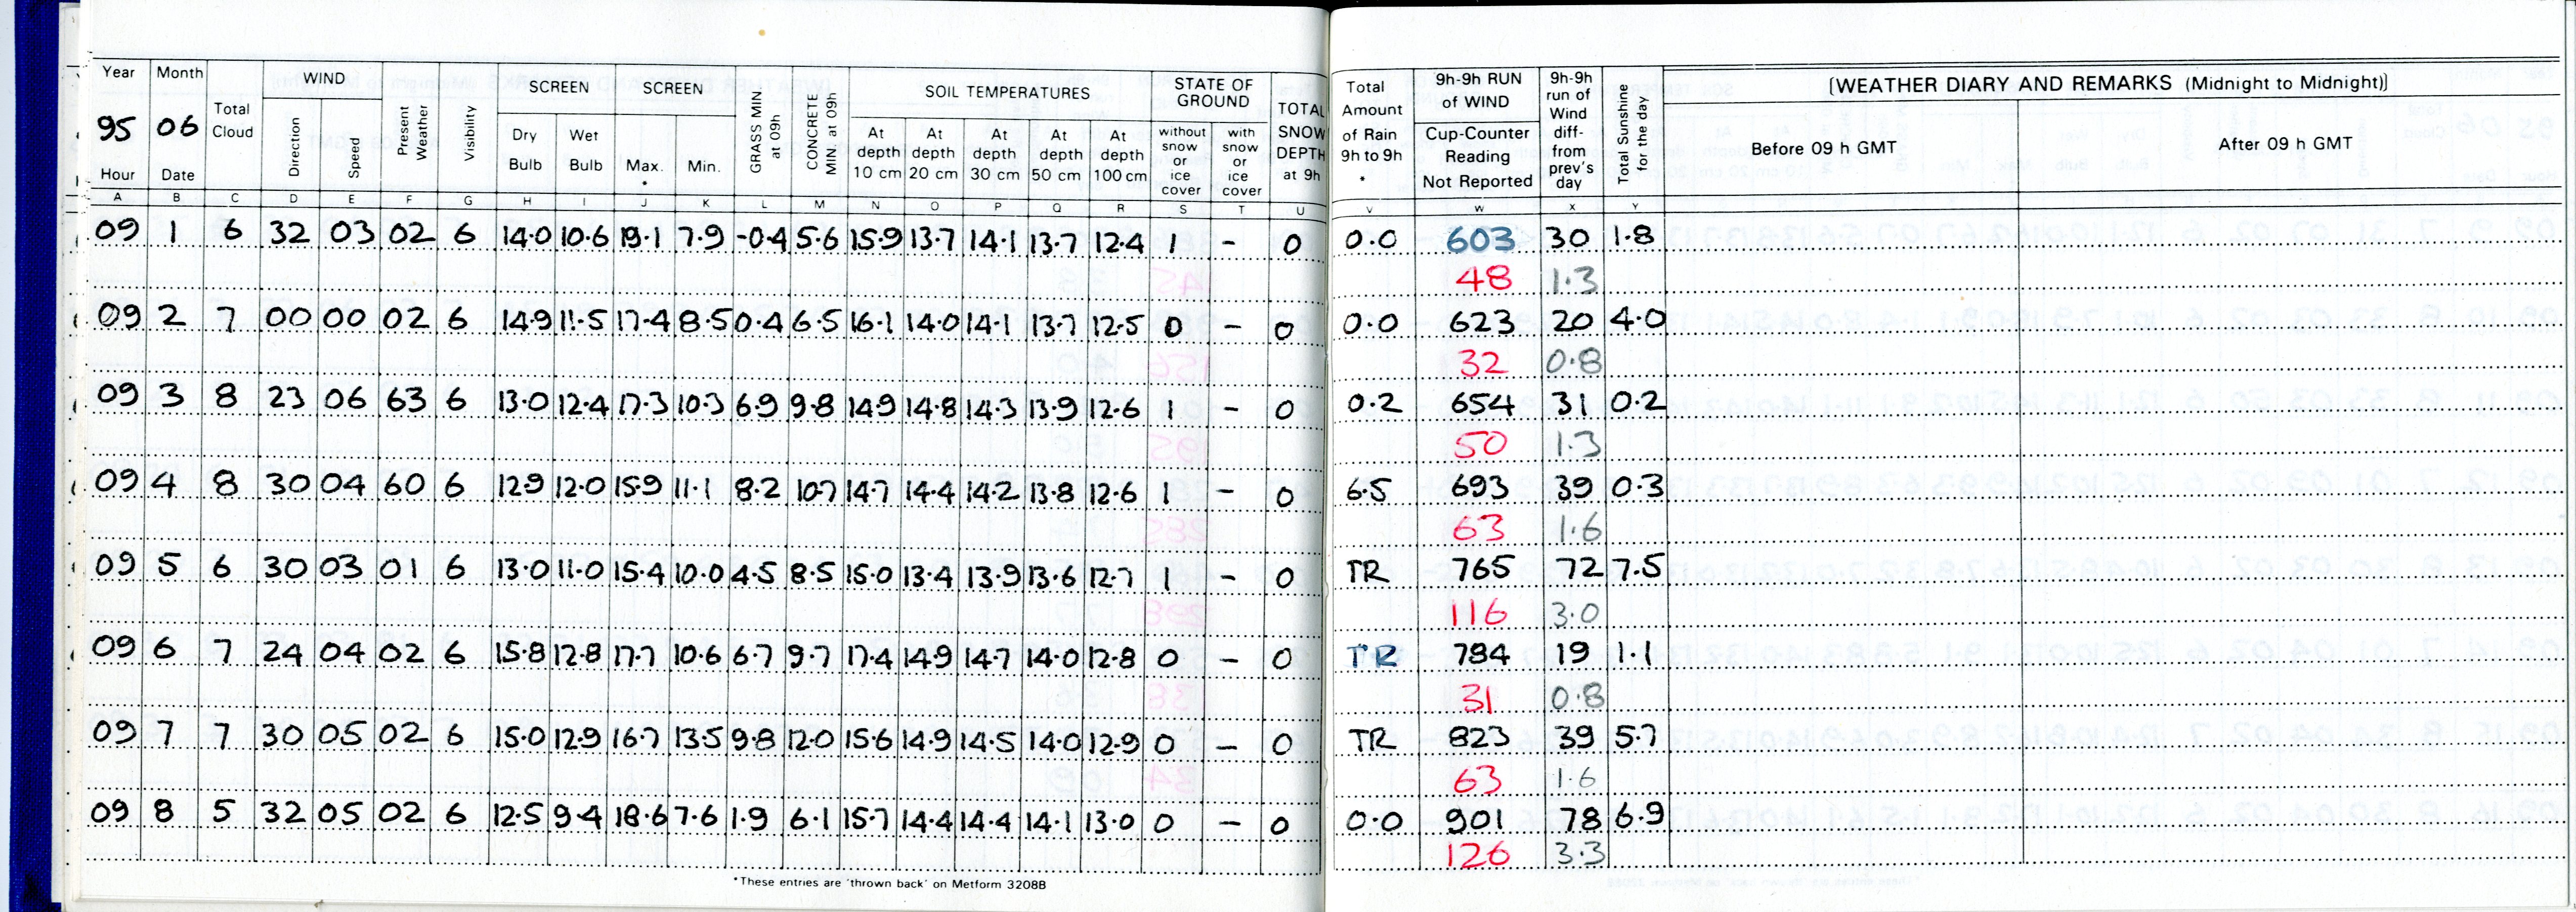 Year Month Total Cloud WIND Present Weather Visibility SCREEN SCREEN GRASS MIN at 09h CONCRETE MIN. at 09h SOIL TEMPERATURES STATE OF GROUND TOTAL SNOW DEPTH at 9h Total Amount of Rain 9h to 9h * 9h-9h RUN of WIND 9h-9h run of Wind diff- from prev's day Total Sunshine for the day [WEATHER DIARY AND REMARKS (Midnight to Midnight)]
95 06 Direction Speed Dry Bulb Wet Bulb Max. * Min. At depth 10 cm At depth 20 cm At depth 30 cm At depth 50 cm At depth 100 cm without snow or ice cover with snow or ice cover Cup-Counter Reading Not Reported Before 09 h GMT After 09 h GMT
Hour Date
A B C D E F G H I J K L M N O P Q R S T U V W X Y
09 1 6 32 03 02 6 14.0 10.6 19.1 7.9 -0.4 5.6 15.9 13.7 14.1 13.7 12.4 1 - 0 0.0 603 30 1.8
48 1.3
09 2 7 00 00 02 6 14.9 11.5 17.4 8.5 0.4 6.5 16.1 14.0 14.1 13.7 12.5 0 - 0 0.0 623 20 4.0
32 0.8
09 3 8 23 06 63 6 13.0 12.4 17.3 10.3 6.9 9.8 14.9 14.8 14.3 13.9 12.6 1 - 0 0.2 654 31 0.2
50 1.3
09 4 8 30 04 60 6 12.9 12.0 15.9 11.1 8.2 10.7 14.7 14.4 14.2 13.8 12.6 1 - 0 6.5 693 39 0.3
63 1.6
09 5 6 30 03 01 6 13.0 11.0 15.4 10.0 4.5 8.5 15.0 13.4 13.9 13.6 12.7 1 - 0 TR 765 72 7.5
116 3.0
09 6 7 24 04 02 6 15.8 12.8 17.7 10.6 6.7 9.7 17.4 14.9 14.7 14.0 12.8 0 - 0 TR 784 19 1.1
31 0.8
09 7 7 30 05 02 6 15.0 12.9 16.7 13.5 9.8 12.0 15.6 14.9 14.5 14.0 12.9 0 - 0 TR 823 39 5.7
63 1.6
09 8 5 32 05 02 6 12.5 9.4 18.6 7.6 1.9 6.1 15.7 14.4 14.4 14.1 13.0 0 - 0 0.0 901 78 6.9
126 3.3
*These entries are 'thrown back' on Metform 3208B